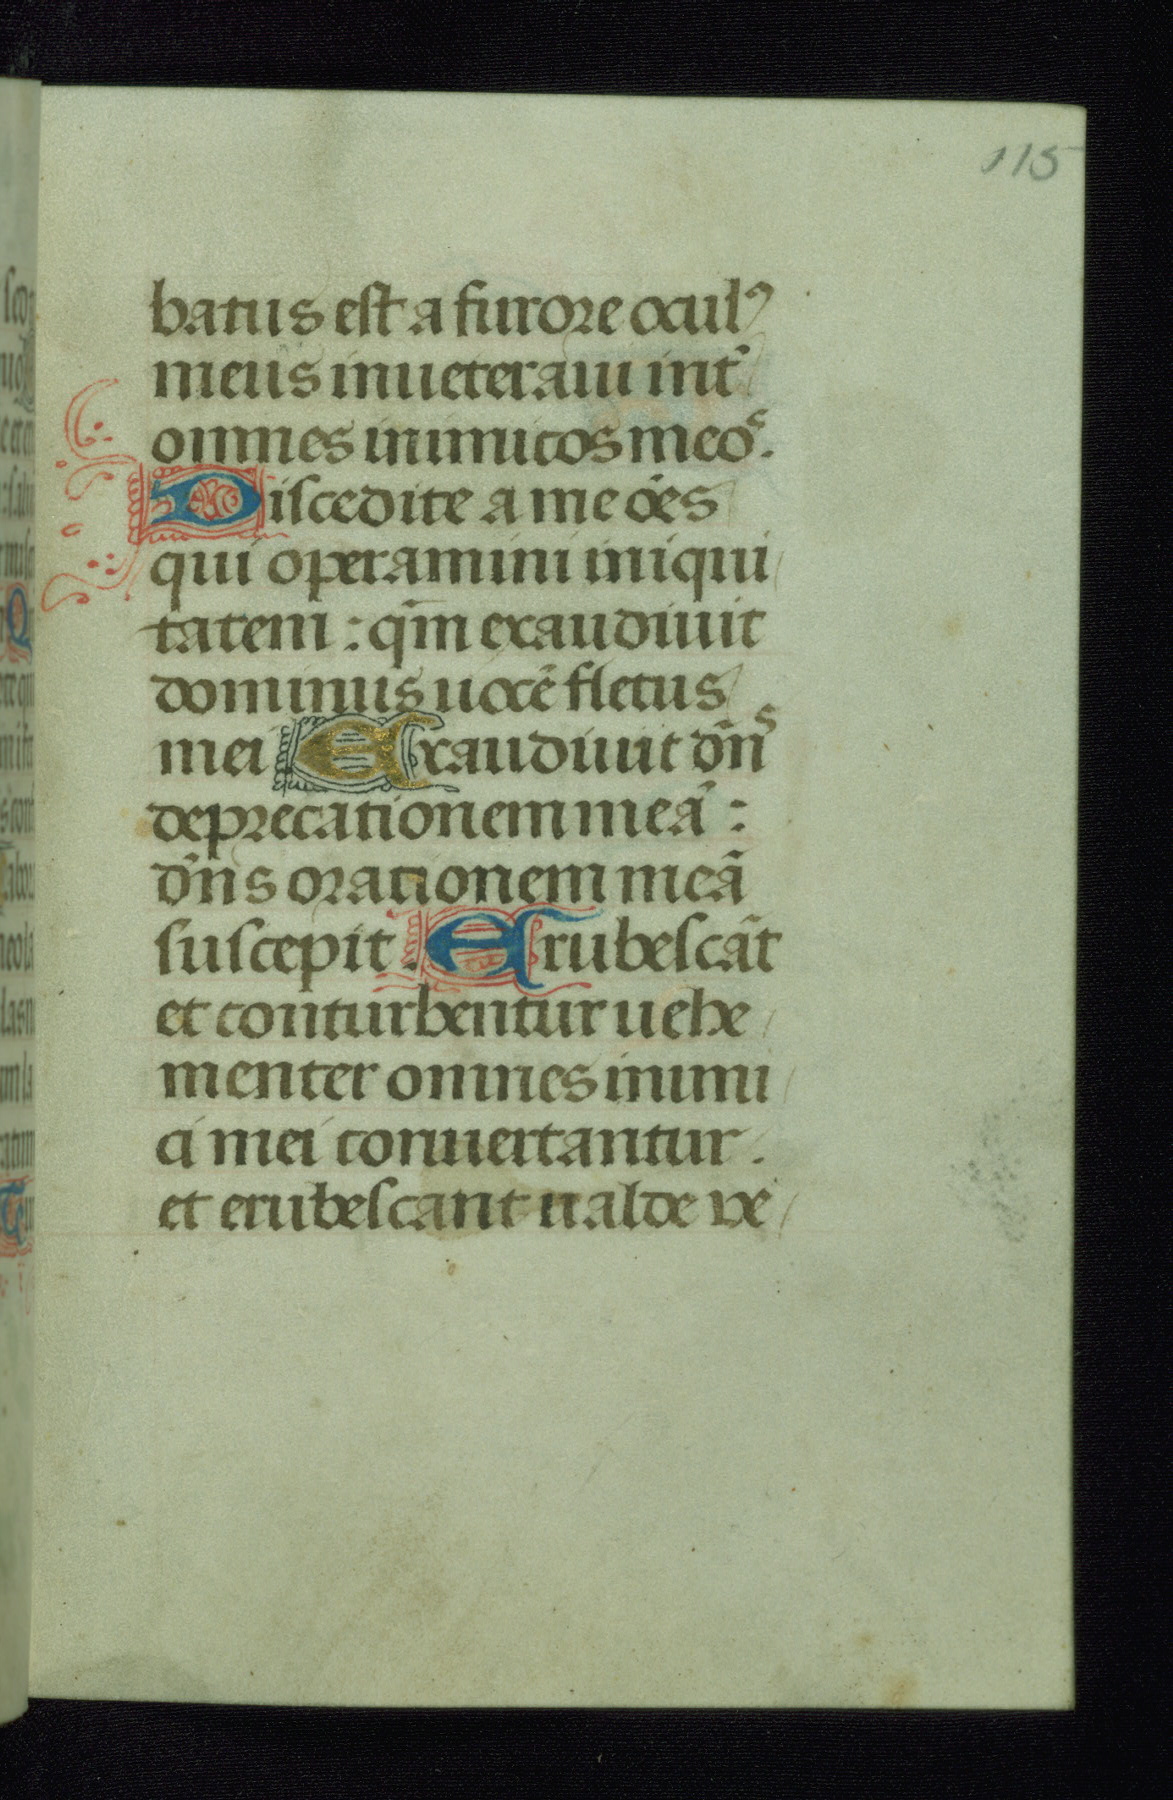 115
batus est a furore ocul⁹
meus inueteraui int̃
omnes inimicos meoˢ.
Discedite a me oẽs
qui operamini iniqui
tatem : qm̃ exaudiuit
dominus uocẽ fletus
mei Exaudiuit dñˢ
deprecationem meã :
dñs orationem meã
suscepit. Erubescãt
et conturbentur uehe
menter omnes inimi
ci mei conuertantur.
et erubescant ualde ve